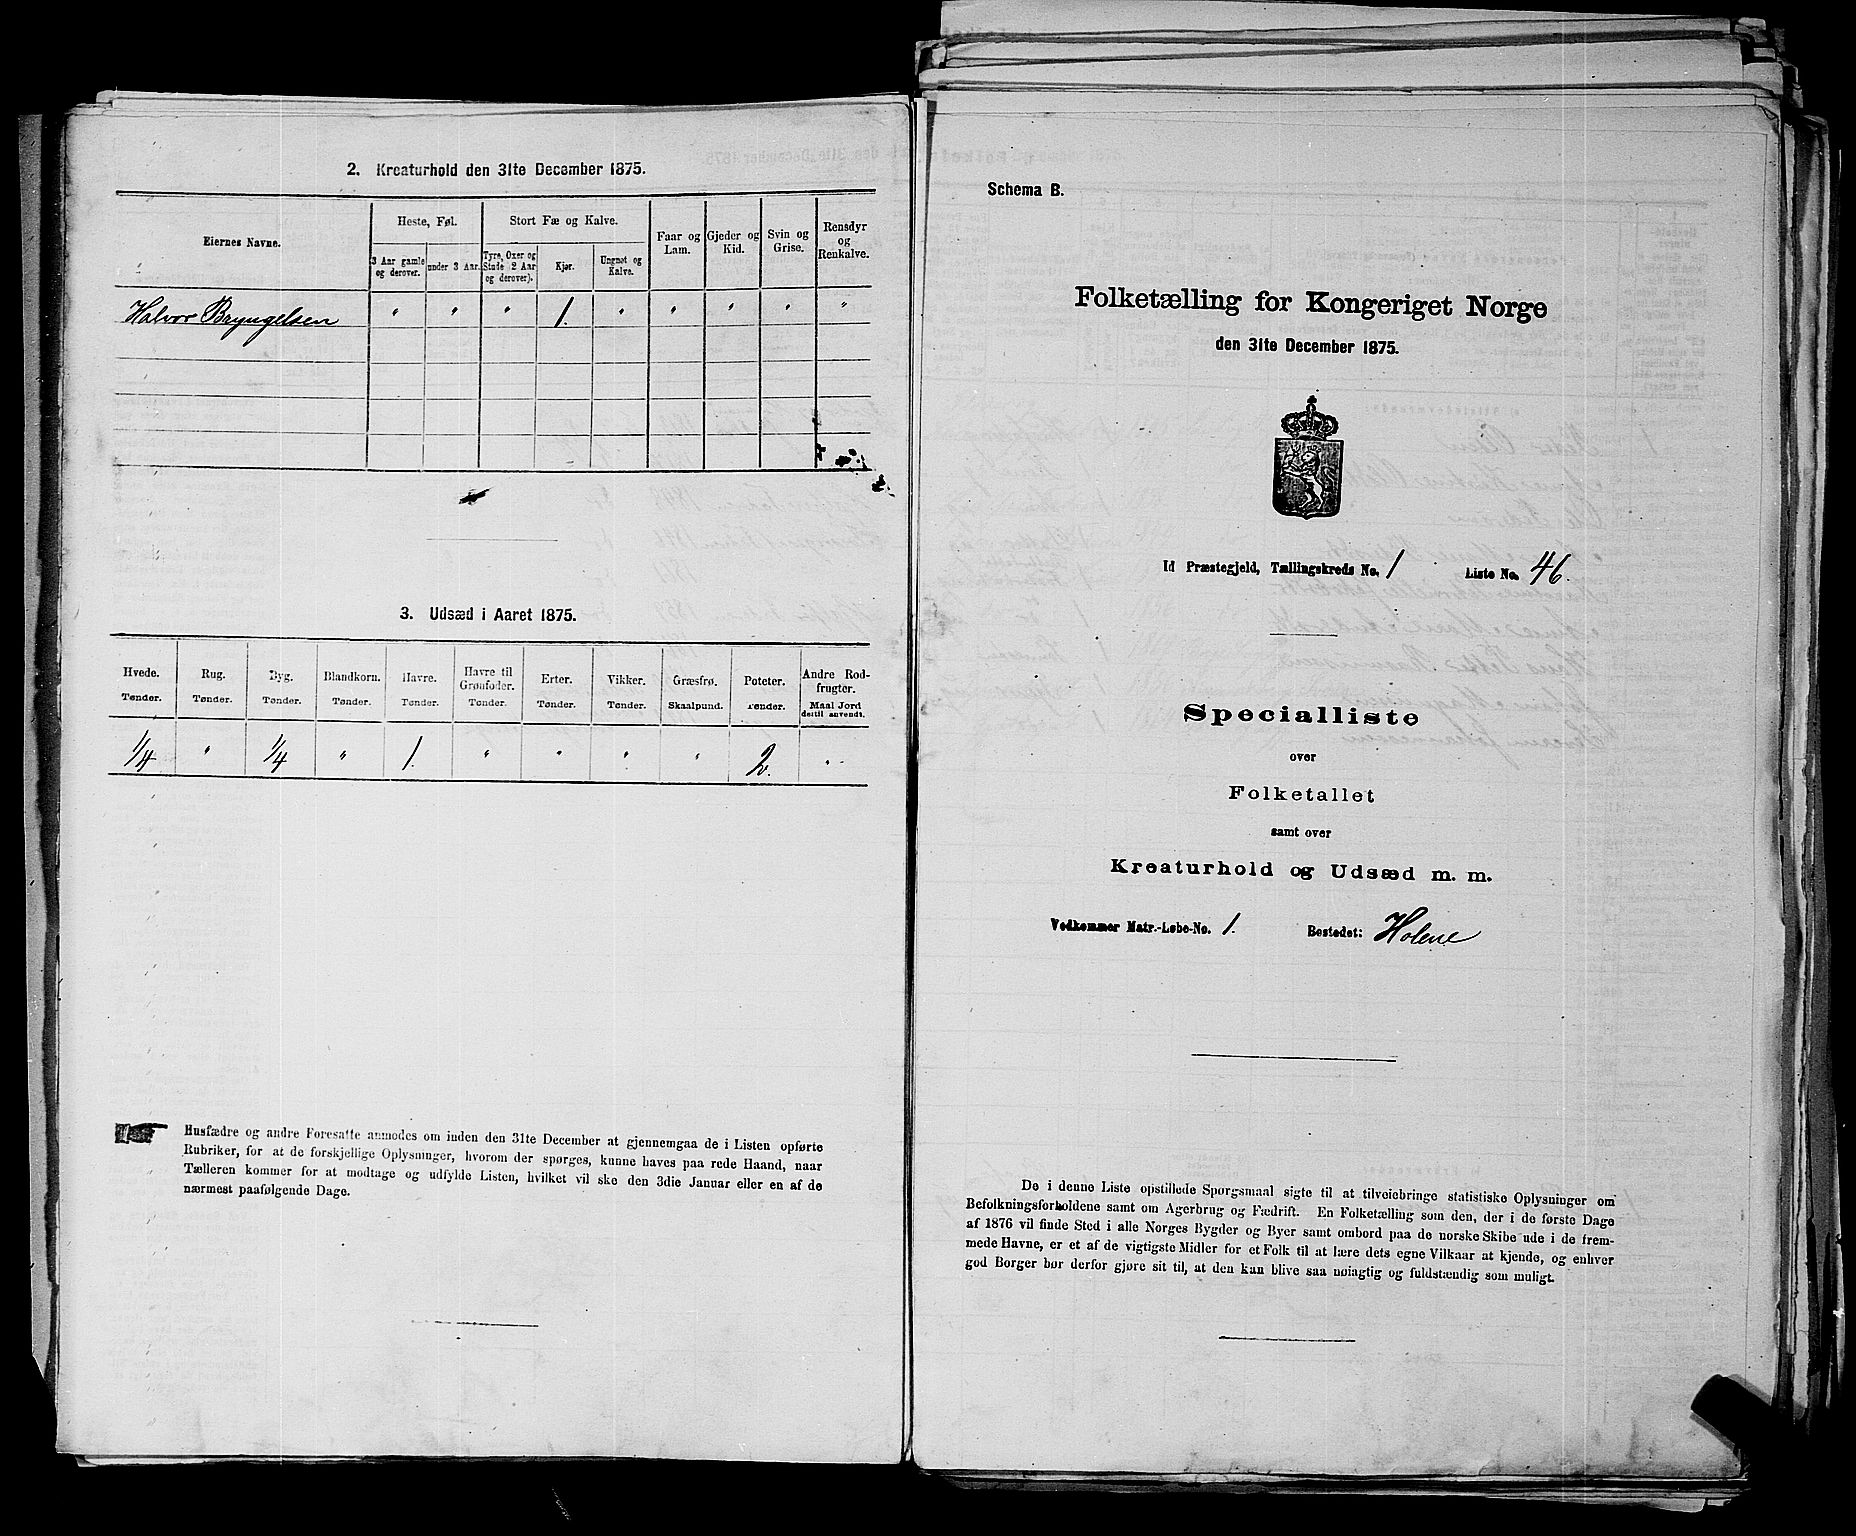 2. Kreaturhold den 31te December 1875.
Eiernes Navne.
Heste, Føl.
3 Aar gamle og derover.
under 3 Aar.
Stort Fæ og Kalve.
Tyre, Oxer og Stude 2 Aar og derover).
Kjør.
Ungnøt og Kalve.
Faar og Lam.
Gjeder og Kid.
Svin og Grise.
Rensdyr og Renkalve.
Halvor Bryngelsen " " " 1. " " " " "
3. Udsæd i Aaret 1875.
Hvede. Rug. Byg. Blandkorn. Havre. Havre til Grønfoder. Erter. Vikker. Græsfrø. Poteter. Andre Rodfrugter.
Tønder. Tønder. Tønder. Tønder. Tønder. Tønder. Tønder. Tønder. Skaalpund. Tønder. Maal Jord dertil anvendt.
1/4 " 1/4 " 1. " " " " 2. "
Husfædre og andre Foresatte anmodes om inden den 31te December at gjennemgaa de i Listen opførte
Rubriker, for at de forskjellige Oplysninger, hvorom der spørges, kunne haves paa rede Haand, naar
Tælleren kommer for at modtage og udfylde Listen, hvilket vil ske den 3die Januar eller en af de
nærmest paafølgende Dage.
Schema B.
Folketælling for Kongeriget Norge
den 31te December 1875.
Id Præstegjeld, Tællingskreds No. 1 Liste No. 46.
Specialliste
over
Folketallet
samt over
Kreaturhold og Udsæd m. m.
Vedkommer Matr.-Løbe-No. 1. Bestedet: Holene
De i denne Liste opstillede Spørgsmaal sigte til at tilveiebringe statistiske Oplysninger om
Befolkningsforholdene samt om Agerbrug og Fædrift. En Folketælling som den, der i de første Dage
af 1876 vil finde Sted i alle Norges Bygder og Byer samt ombord paa de norske Skibe ude i de frem-
mede Havne, er et af de vigtigste Midler for et Folk til at lære dets egne Vilkaar at kjende, og enhver
god Borger bør derfor gjøre sit til, at den kan blive saa nøiagtig og fuldstændig som muligt.